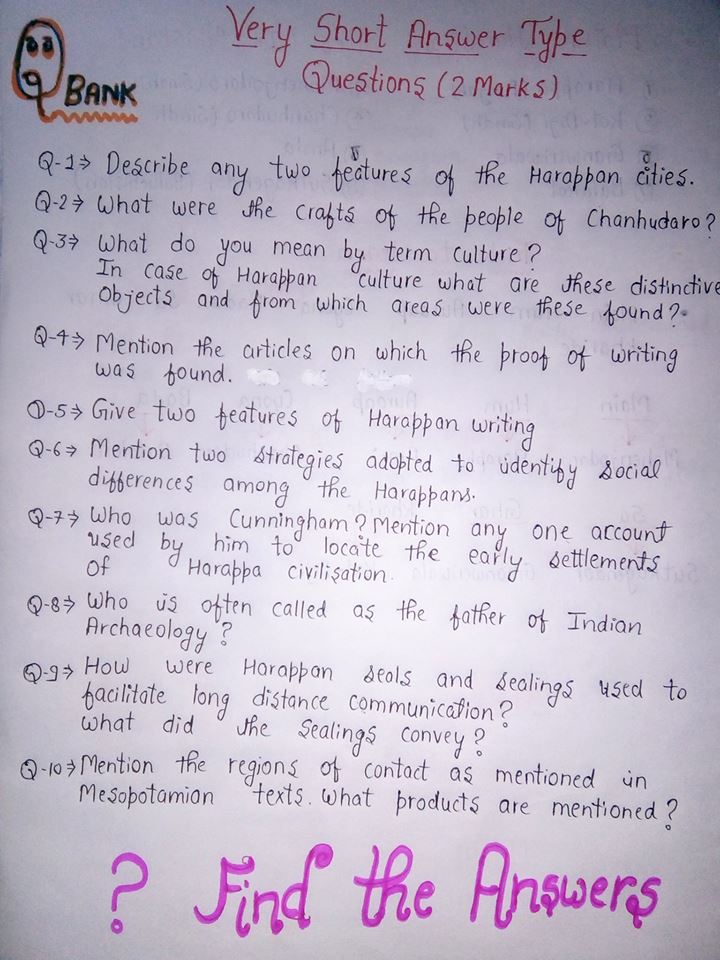 Very Short Answer Type
Questions (2 Marks)
Q BANK
Q-1⇒ Describe any two features of the Harappan cities.
Q-2⇒ What were the crafts of the people of Chanhudaro?
Q-3⇒ What do you mean by term culture?
In case of Harappan culture what are these distinctive
Objects and from which areas were these found?
Q-4⇒ Mention the articles on which the proof of writing
was found.
Q-5⇒ Give two features of Harappan writing
Q-6⇒ Mention two strategies adopted to identify social
differences among the Harappans.
Q-7⇒ Who was Cunningham? Mention any one account
used by him to locate the early settlements
of Harappa civilisation.
Q-8⇒ Who is often called as the father of Indian
Archaeology?
Q-9⇒ How were Harappan seals and sealings used to
facilitate long distance communication?
What did the Sealings convey?
Q-10⇒ Mention the regions of contact as mentioned in
Mesopotamian texts. What products are mentioned?
? Find the Answers